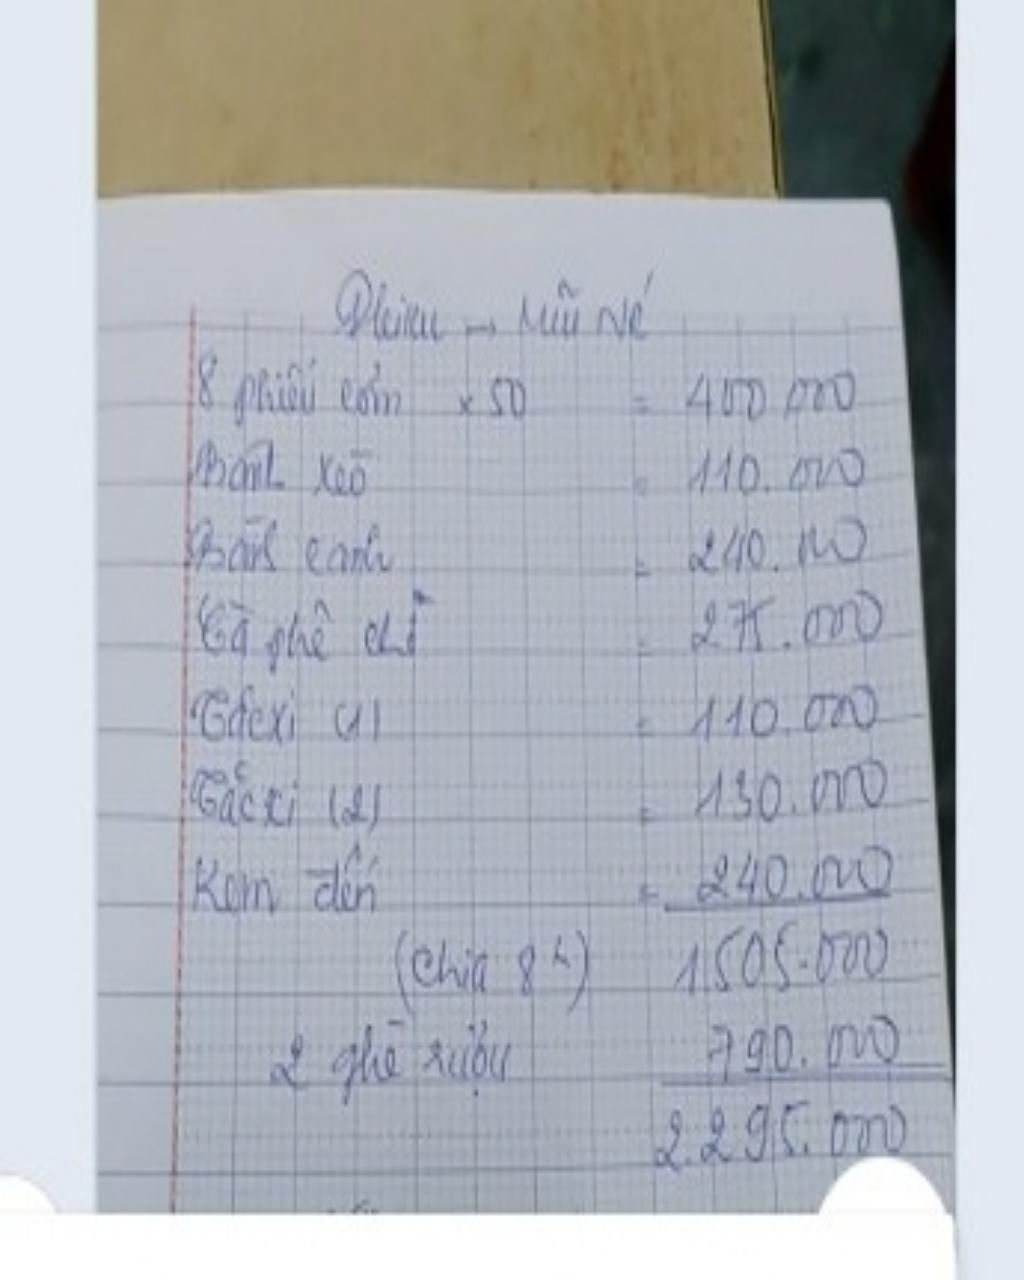 → Mũi Né
8 phiếu cơm × 50 = 400.000
Bánh xèo = 110.000
Bánh canh = 240.000
Cà phê chỉ = 275.000
Tắc xi (1) = 110.000
Tắc xi (2) = 130.000
Kem đến = 240.000
(Chia 8 h) 1505.000
2 ghè rượu 790.000
2.295.000